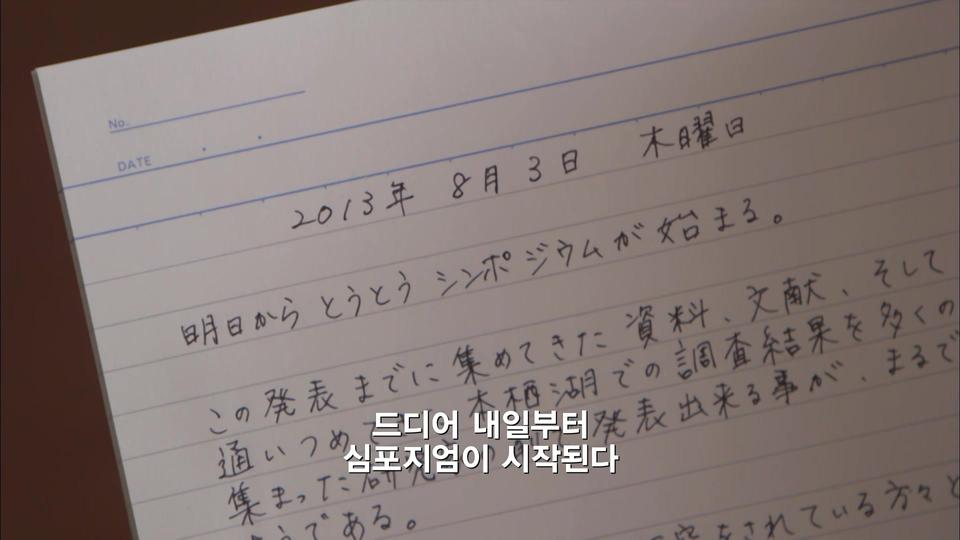 No.
DATE
2013年 8月 3日 木曜日
明日から とうとう シンポジウムが 始まる。
この発表までに集めてきた資料、文献、そして
通いつめ 本栖湖での調査結果を多くの
集まった研究 発表出来る事が、まるで
うである。
をされている方々と
드디어 내일부터
심포지엄이 시작된다